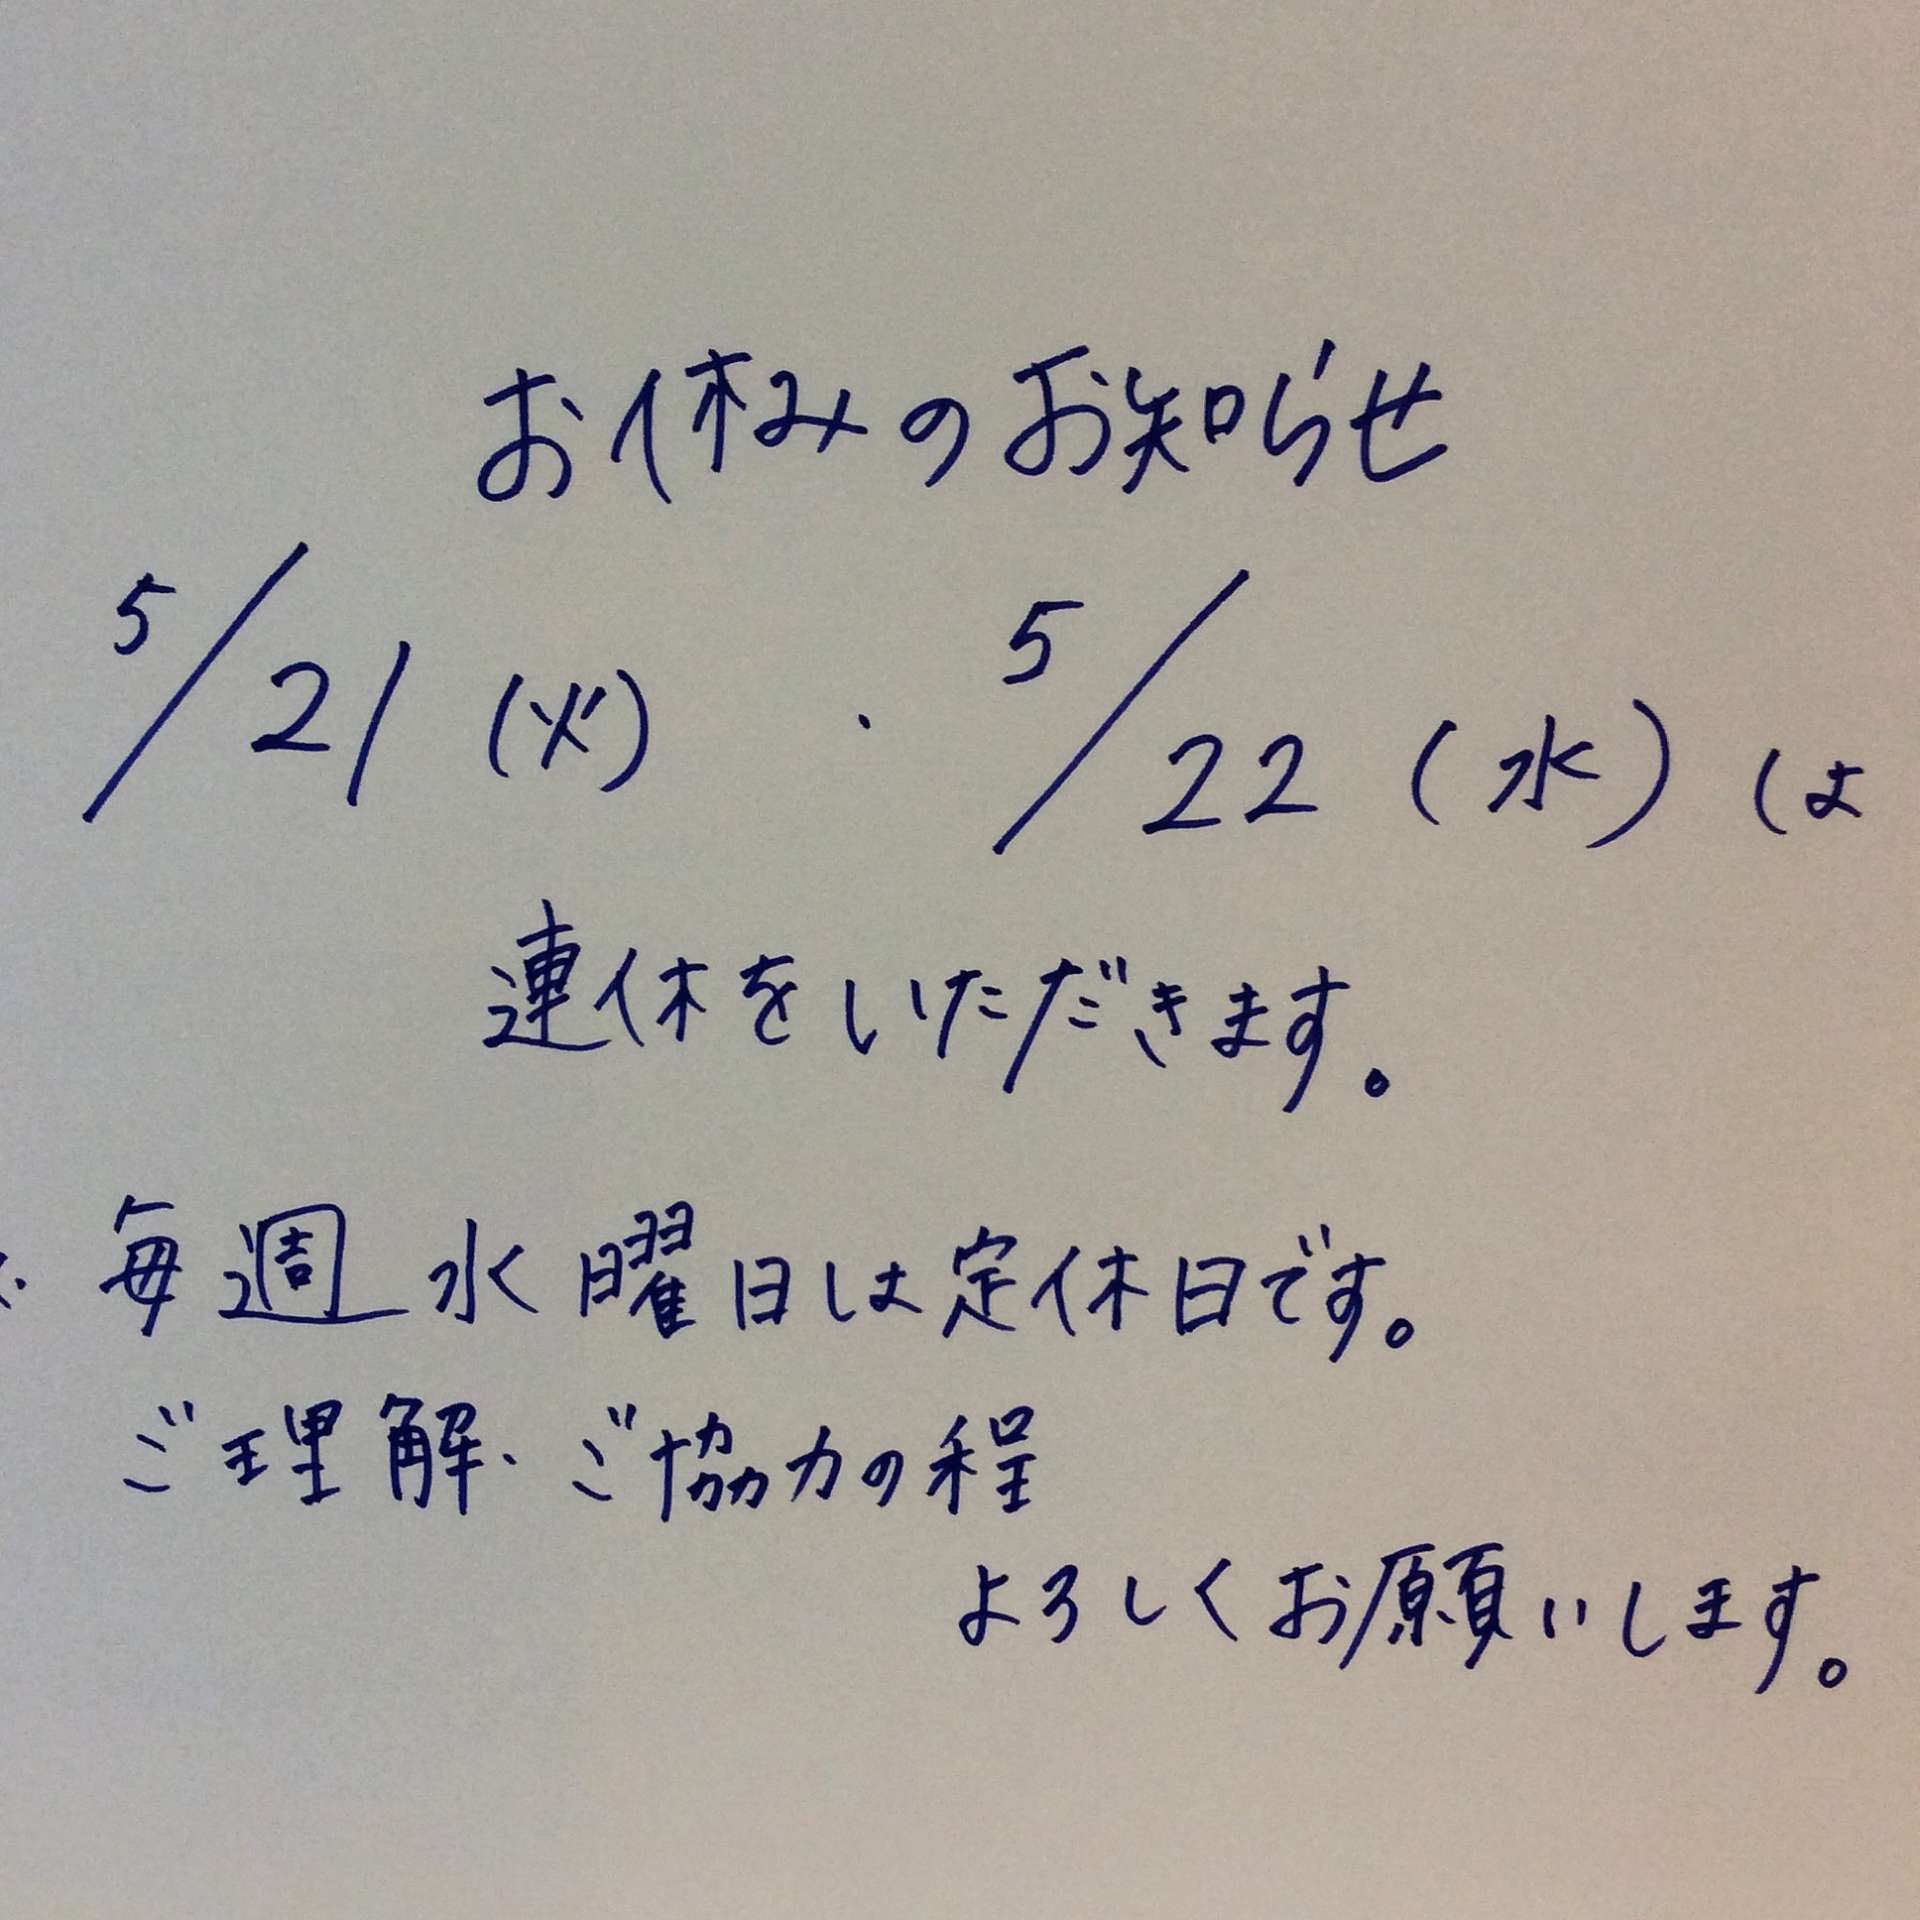 お休みのお知らせ
5/21(火) ・ 5/22(水)は
連休をいただきます。
毎週水曜日は定休日です。
ご理解・ご協力の程
よろしくお願いします。